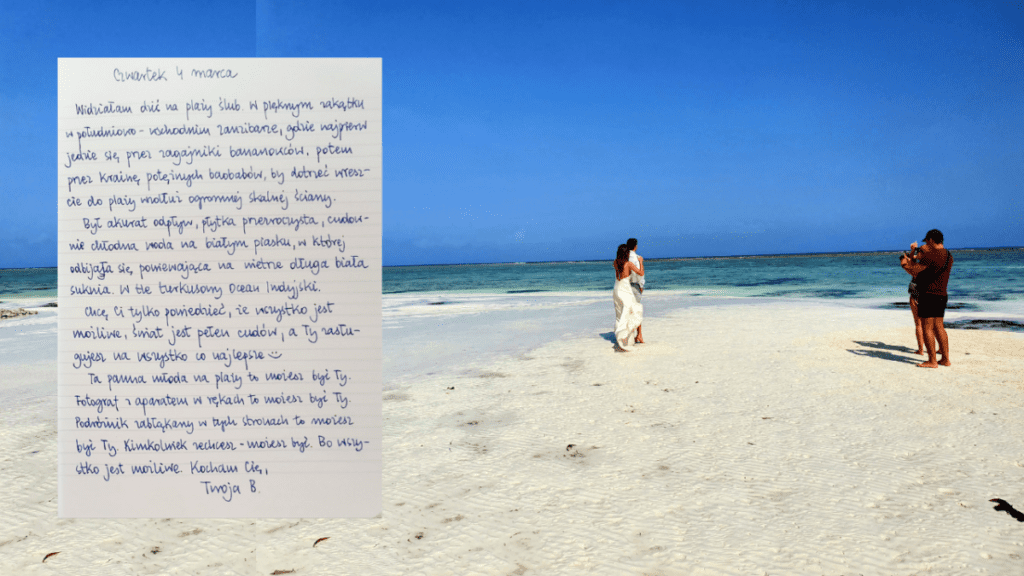 Czwartek 4 marca
Widziałam dziś na plaży ślub. W pięknym zakątku
w południowo-wschodnim Zanzibarze, gdzie najpierw
jedzie się przez zagajniki bananowców, potem
przez krainę potężnych baobabów, by dotrzeć wresz-
cie do plaży wzdłuż ogromnej skalnej ściany.
Był akurat odpływ, płytka przezroczysta, cudow-
nie chłodna woda na białym piasku, w której
odbijała się, powiewająca na wietrze długa biała
suknia. W tle turkusowy Ocean Indyjski.
Chcę Ci tylko powiedzieć, że wszystko jest
możliwe, świat jest pełen cudów, a Ty zasłu-
gujesz na wszystko co najlepsze
Ta panna młoda na plaży to możesz być Ty.
Fotograf z aparatem w rękach to możesz być Ty.
Podróżnik zabłąkany w tych stronach to możesz
być Ty. Kimkolwiek zechcesz - możesz być. Bo wszy-
stko jest możliwe. Kocham Cię,
Twoja B.